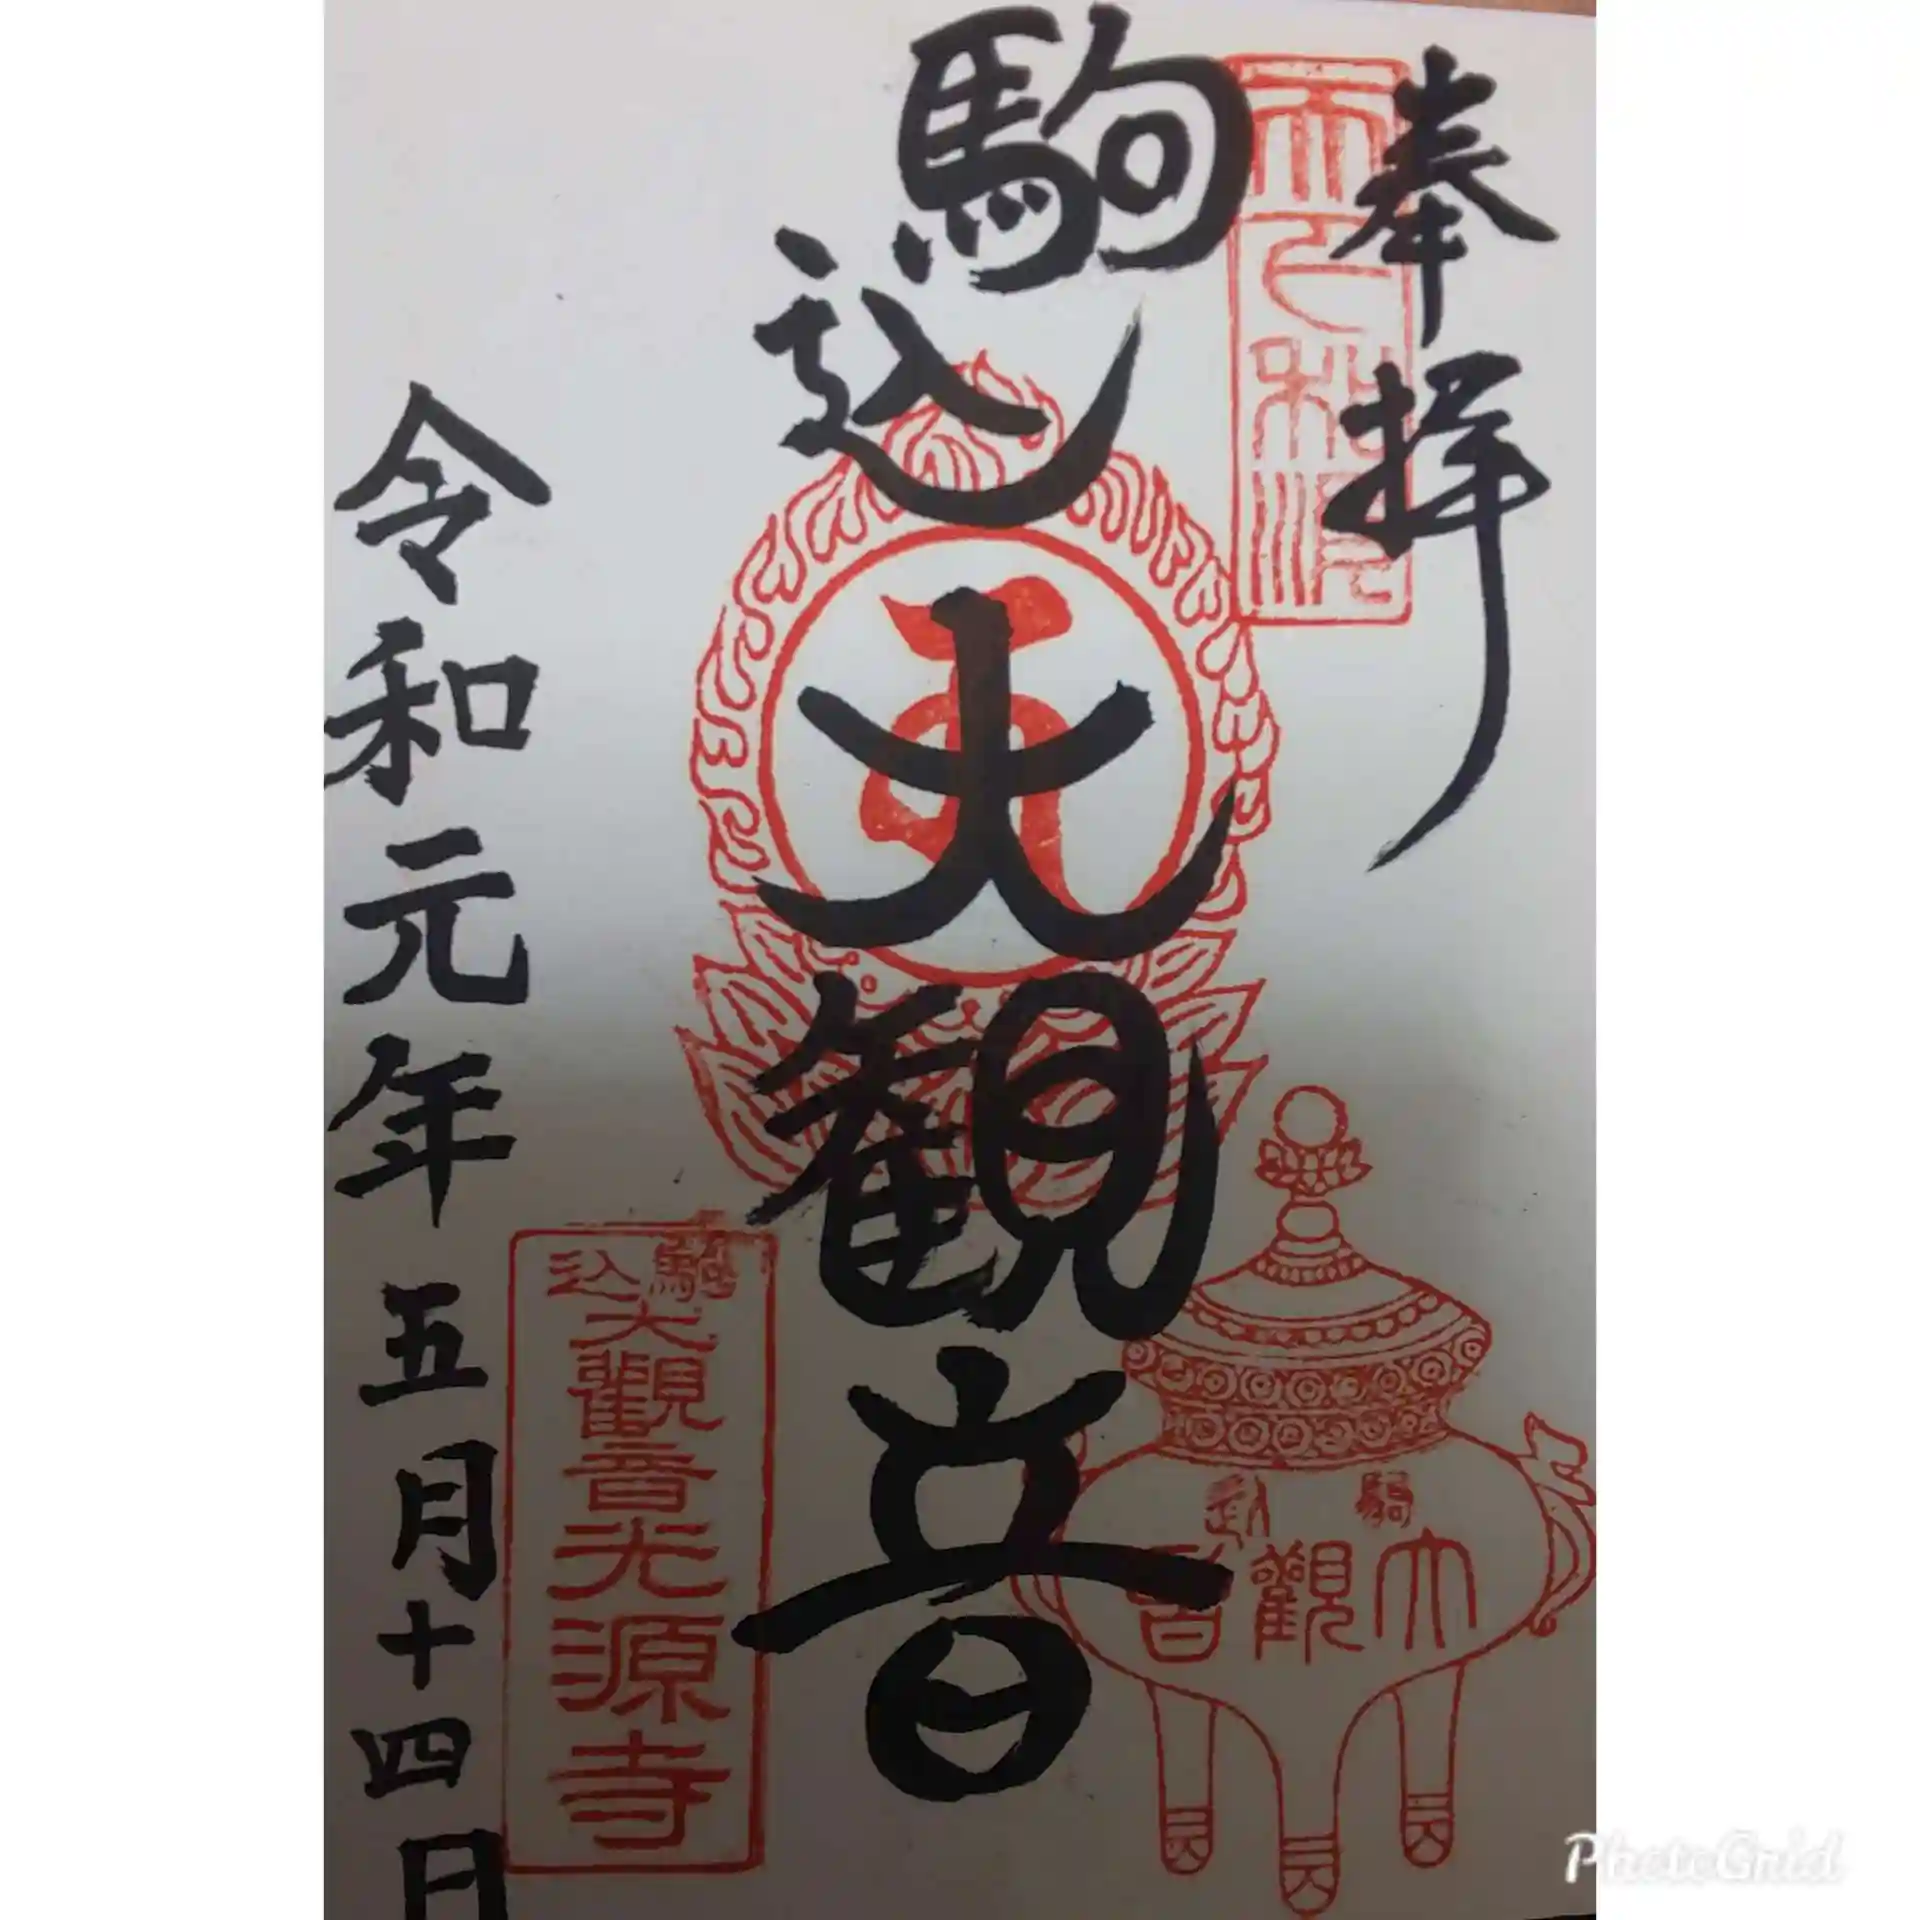 奉拝
駒込大観音
令和元年五月十四日
駒込
大觀音光源寺
駒込
大觀音
PhotoGrid